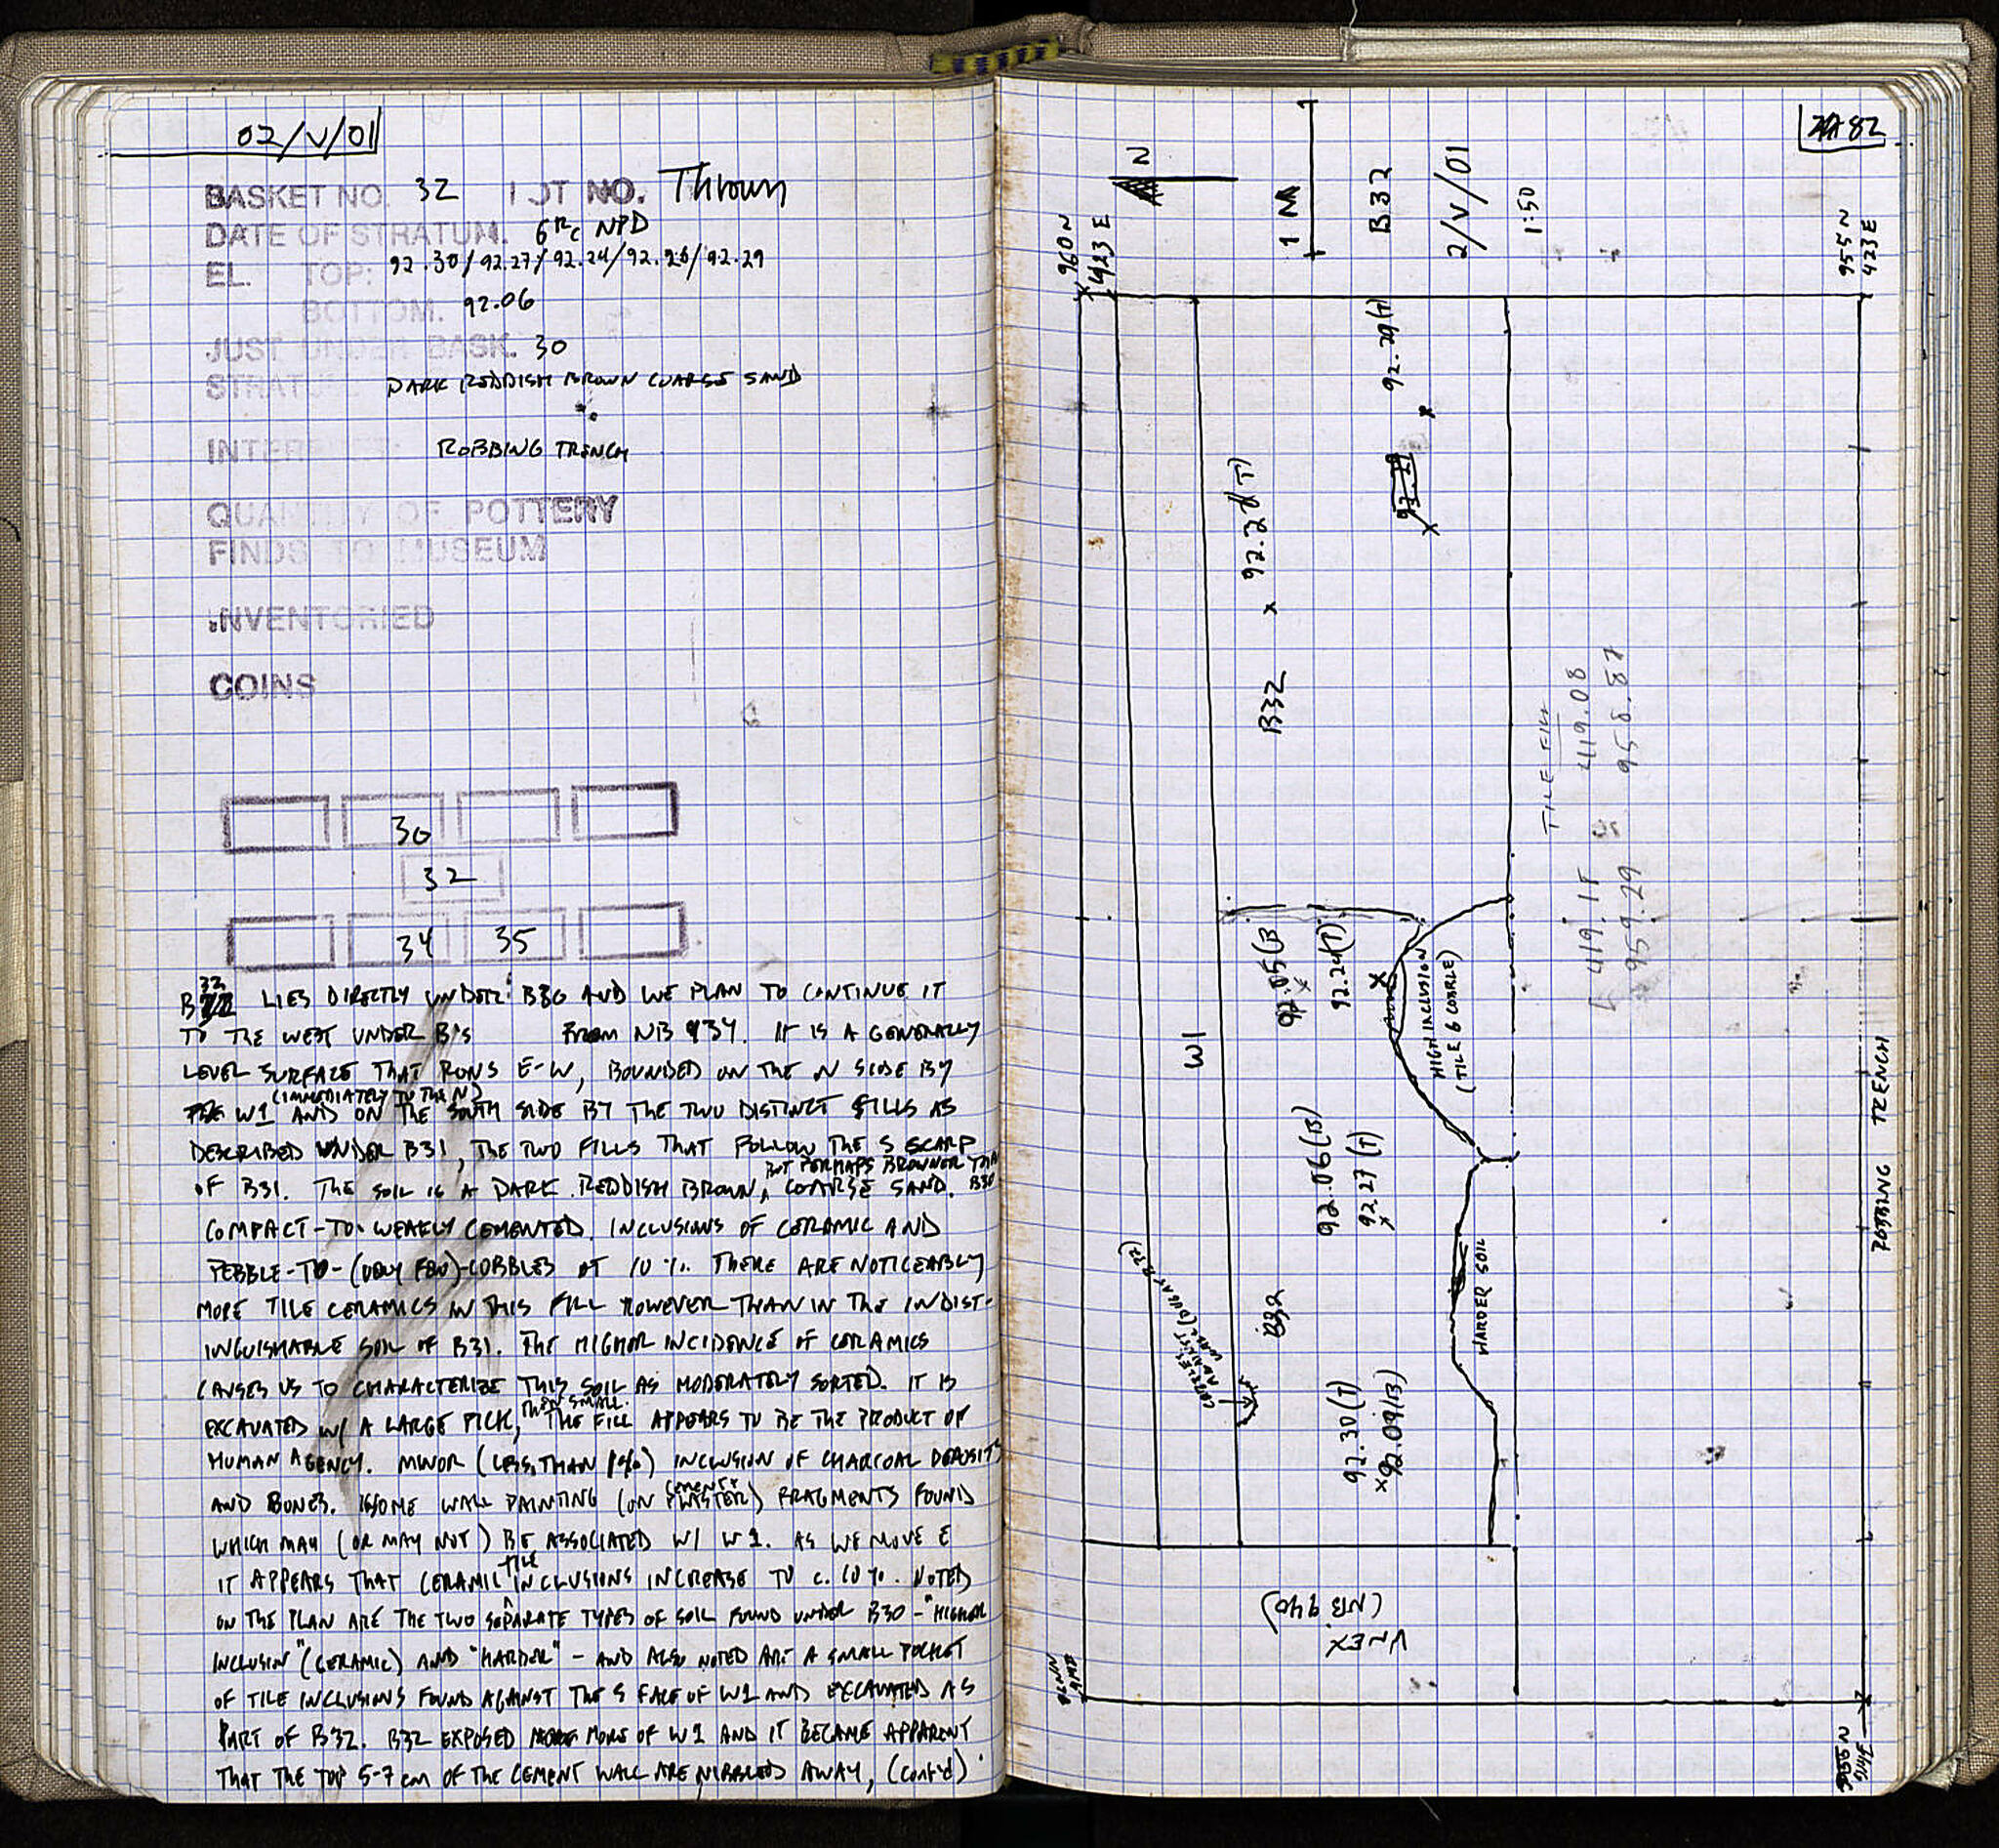 02/V/01
BASKET NO. 32 LOT NO. Thrown
DATE OF STRATUM. NPD
EL. TOP: 92.30/92.27/92.24/92.26/92.29
BOTTOM. 92.06
JUST UNDER BASK. 30
STRATUM DARK REDDISH BROWN COARSE SAND
INTERPRET: ROBBING TRENCH
QUANTITY OF POTTERY
FINDS TO MUSEUM
INVENTORIED
COINS
30
32
34 35
B32 LIES DIRECTLY UNDER B30 AND WE PLAN TO CONTINUE IT
TO THE WEST UNDER B'S FROM NB 934. IT IS A GENERALLY
LEVEL SURFACE THAT RUNS E-W, BOUNDED ON THE N SIDE BY
(IMMEDIATELY TO THE N)
THE W1 AND ON THE SOUTH SIDE BY THE TWO DISTINCT FILLS AS
DESCRIBED UNDER B31, THE TWO FILLS THAT FOLLOW THE S SCARP
BUT PERHAPS BROWNER THAN
OF B31. THE SOIL IS A DARK REDDISH BROWN, COARSE SAND. B30
COMPACT-TO-WEAKLY CEMENTED. INCLUSIONS OF CERAMIC AND
PEBBLE-TO-(VERY FEW)-COBBLES AT 10%. THERE ARE NOTICEABLY
MORE TILE CERAMICS IN THIS FILL HOWEVER THAN IN THE INDIST-
INGUISHABLE SOIL OF B31. THE HIGHER INCIDENCE OF CERAMICS
CAUSES US TO CHARACTERIZE THIS SOIL AS MODERATELY SORTED. IT IS
THEN SMALL.
EXCAVATED W/ A LARGE PICK, THE FILL APPEARS TO BE THE PRODUCT OF
HUMAN AGENCY. MINOR (LESS THAN 1%) INCLUSION OF CHARCOAL DEPOSITS
CEMENT
AND BONES. SOME WALL PAINTING (ON PLASTER) FRAGMENTS FOUND
WHICH MAY (OR MAY NOT) BE ASSOCIATED W/ W1. AS WE MOVE E
TILE
IT APPEARS THAT CERAMIC INCLUSIONS INCREASE TO C. 10%. NOTED
ON THE PLAN ARE THE TWO SEPARATE TYPES OF SOIL FOUND UNDER B30 - "HIGHER
INCLUSION" (CERAMIC) AND "HARDER" - AND ALSO NOTED ARE A SMALL POCKET
OF TILE INCLUSIONS FOUND AGAINST THE S FACE OF W1 AND EXCAVATED AS
PART OF B32. B32 EXPOSED MORE OF W1 AND IT BECAME APPARENT
THAT THE TOP 5-7 cm OF THE CEMENT WALL ARE NIBBLED AWAY, (cont'd)
82
N
1 M
B32
2/V/01
1:50
960 N
423 E
955 N
423 E
92.29(T)
B32
W1
92.24(T)
HIGH INCLUSION
(TILE & COBBLE)
92.06(B)
92.27(T)
B32
HARDER SOIL
92.30(T)
92.09(B)
TILE FILL
419.08
958.87
959.29
ROBBING TRENCH
UNEX.
(NB 940)
955 N